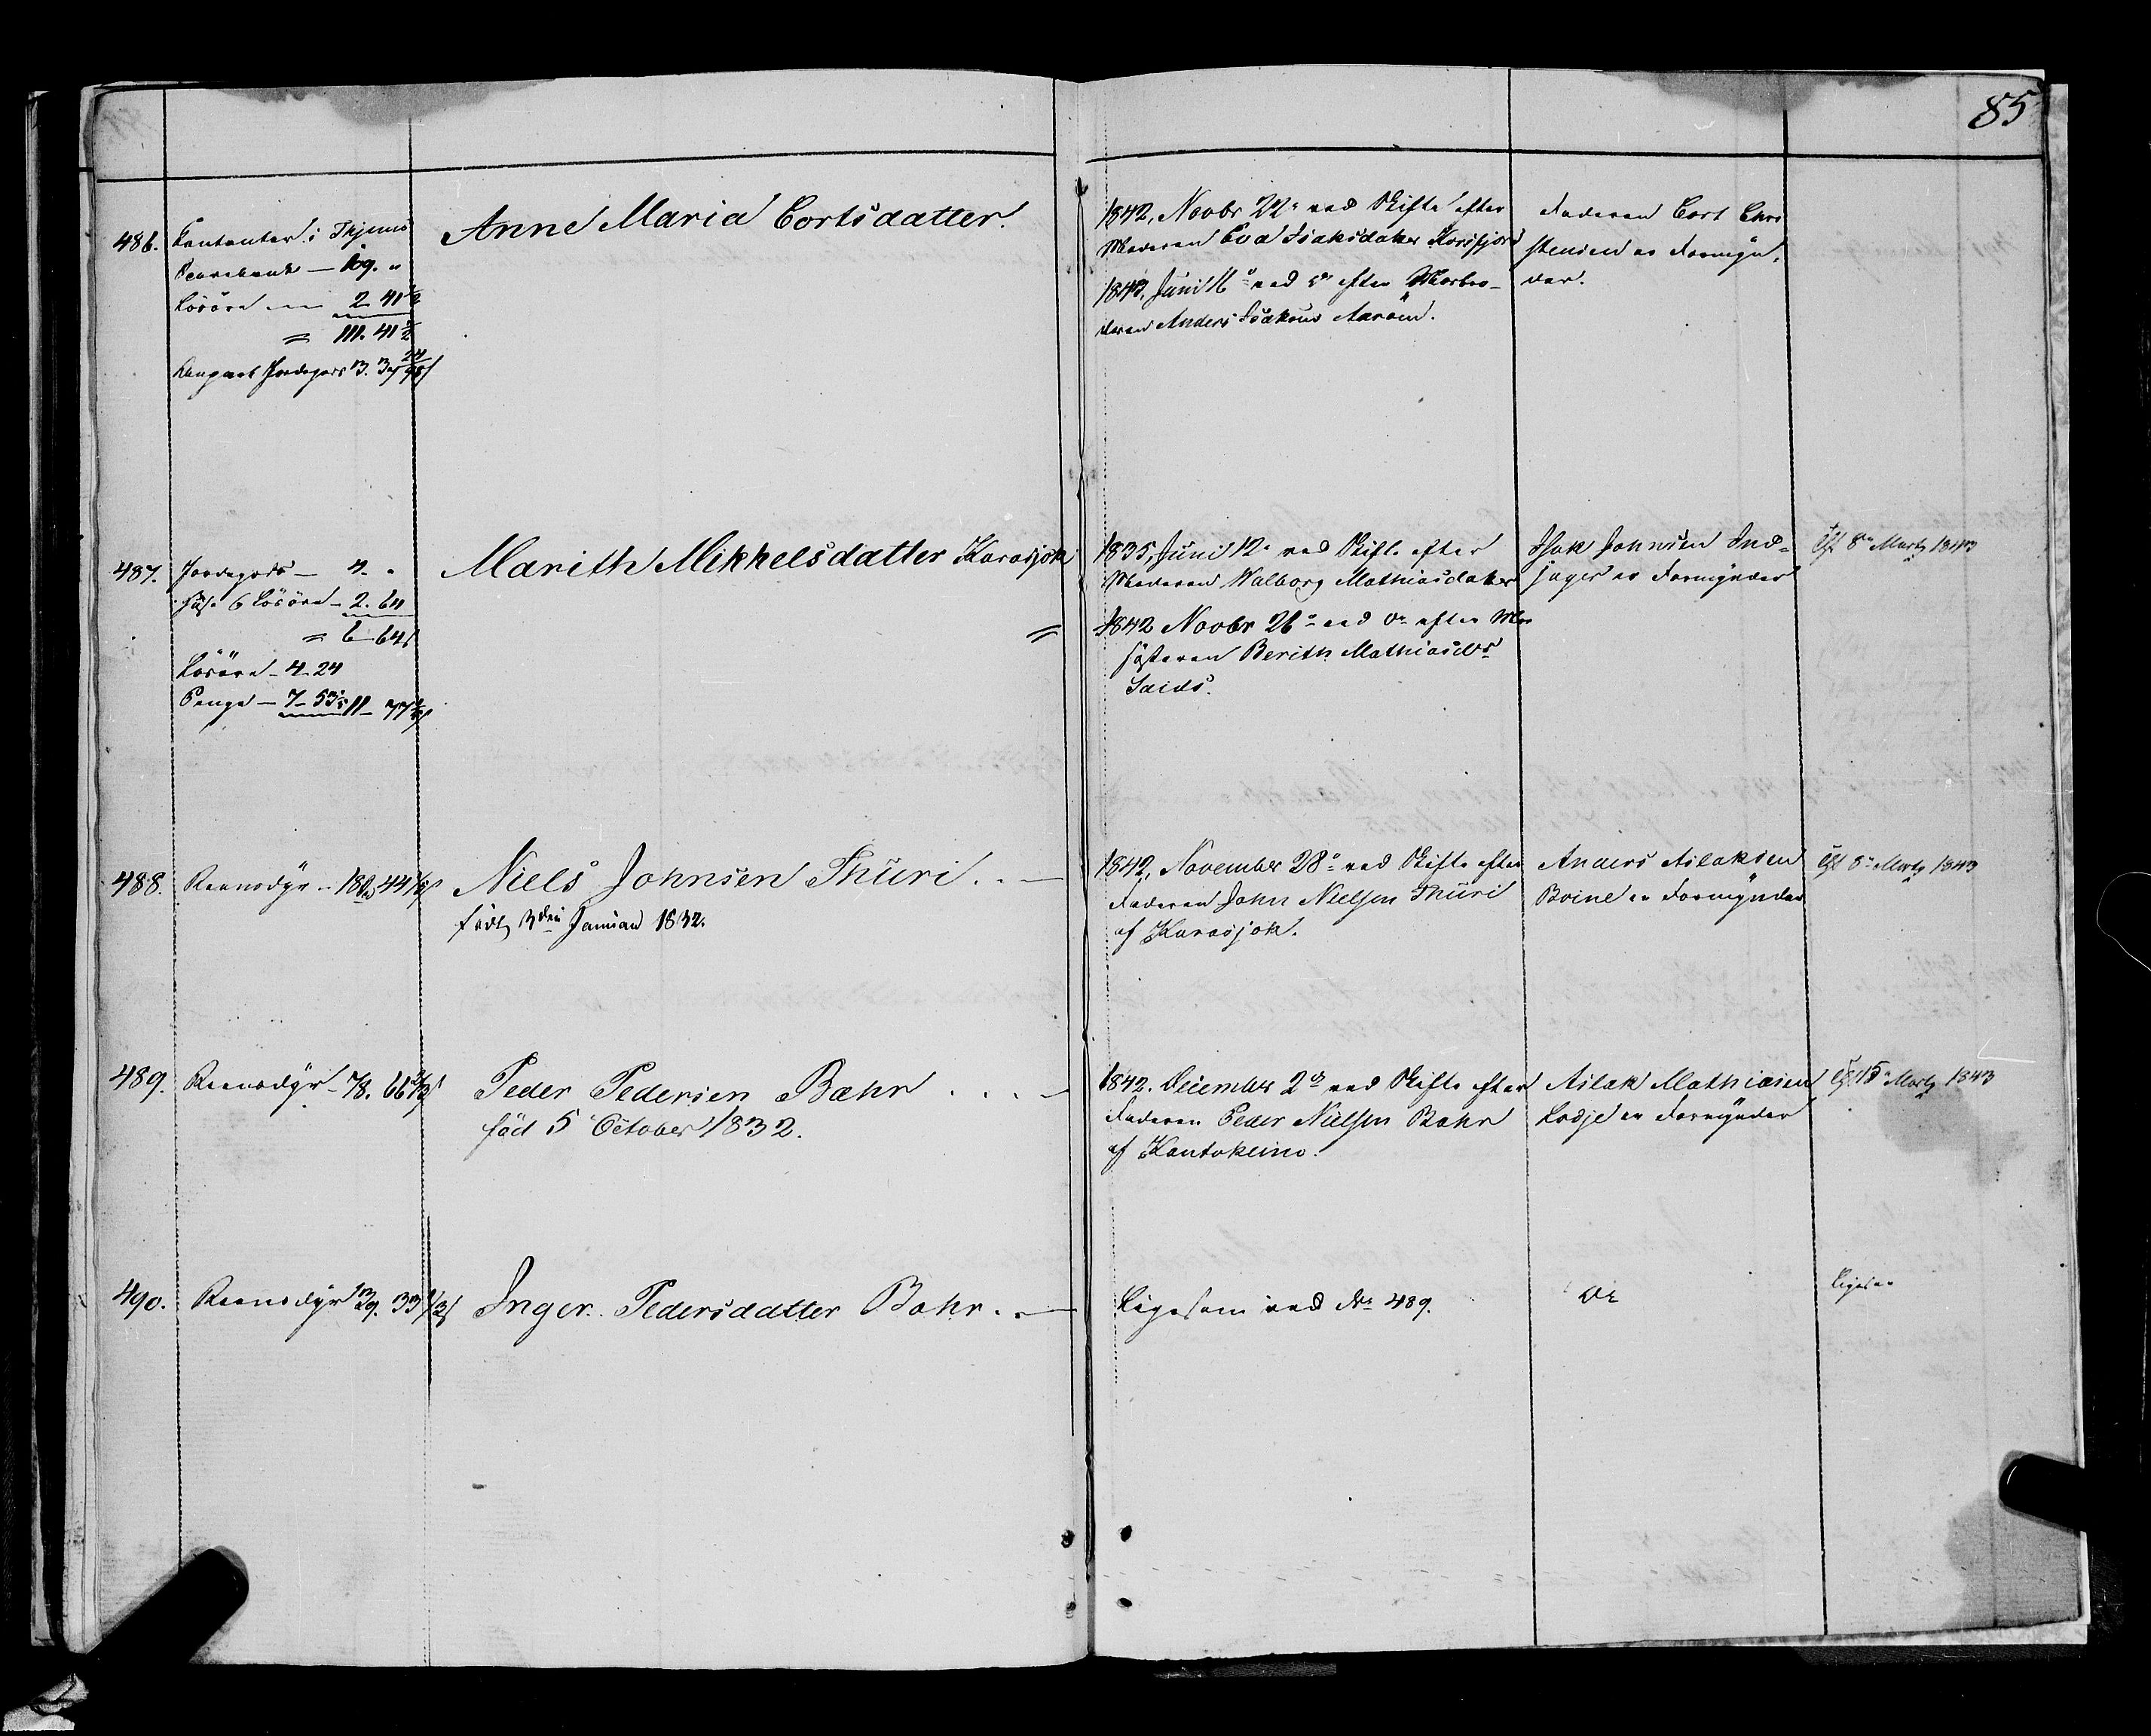 85
486.
Contanter i Thjems
Sparebank — 109. "
Løsöre — 2 41½
= 111. 41½
Anne Maria Cortsdatter.
1842, Novbr 22 ved Skifte efter
Moderen Eva Isaksdatter Korsfjord
1843, Juni 16 ved do efter Morbro-
deren Anders Isaksen Aaröen.
Faderen Cort Chri
stensen er Formyn-
der.
487.
Jordegods — 4. "
Løsöre — 2. 64
= 6 64
Løsöre — 4. 24
Penge — 7 — 53 11 — 77
Marith Mikkelsdatter Karasjok
1835, Juni 12 ved Skifte efter
Moderen Walborg Mathiasdatter
= 1842 Novbr 26 ved do efter Mo
søsteren Berith Mathiasdr
Saids.
Isak Johnsen Ind-
jager er Formynder
8 Marts 1843
488.
Reensdyr — 180 44
Niels Johnsen Thuri . . —
født 3die Januar 1832.
1842, November 28 ved Skifte efter
Faderen John Nielsen Thuri
af Karasjok.
Anders Aslaksen
Boine er Formynder
8 Marts 1843
489.
Reensdyr — 78. 66 2/3
Peder Pedersen Bahr . . . —
föd 5 October 1832.
1842. December 2 ved Skifte efter
Faderen Peder Nielsen Bahr
af Kautokeino.
Aslak Mathisen
Lodje er Formynder
15 Marts 1843
490.
Reensdyr 39. 33 1/3
Inger Pedersdatter Bahr . . —
Ligesom ved No 489.
Do
Ligesaa